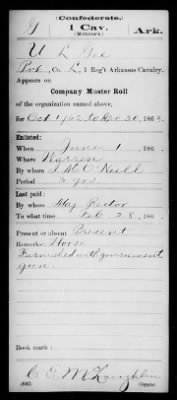 (Confederate.)
G 1 Cav. Ark.
(Monroe's)
U L Gee
Pvt, Co. L, 1 Reg't Arkansas Cavalry.
Appears on
Company Muster Roll
of the organization named above,
for Oct 31/62 to 30, 186
Enlisted:
When June 1, 186
Where Warren
By whom J M O'Neill
Period 3 yrs
Last paid:
By whom Maj Rector
To what time Feb 28, 186
Present or absent Present
Remarks: Horse
Furnished with government
gun.
Book mark:
C E McLaughlin
(642) Copyist.